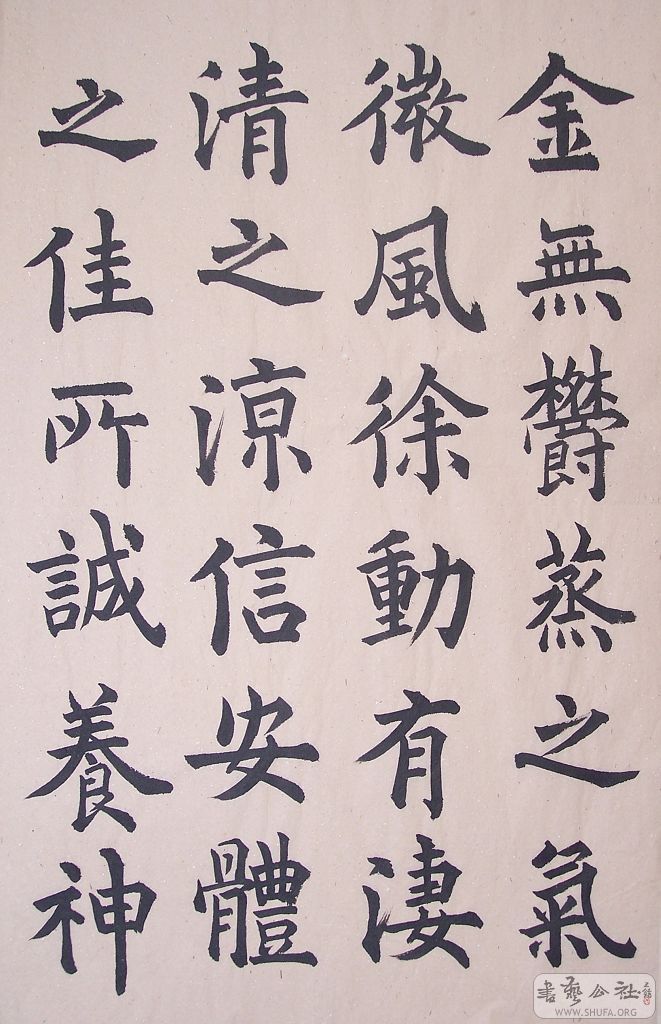 金無欝蒸之氣
微風徐動有淒
清之涼信安體
之佳所誠養神
書藝公社
WWW.SHUFA.ORG